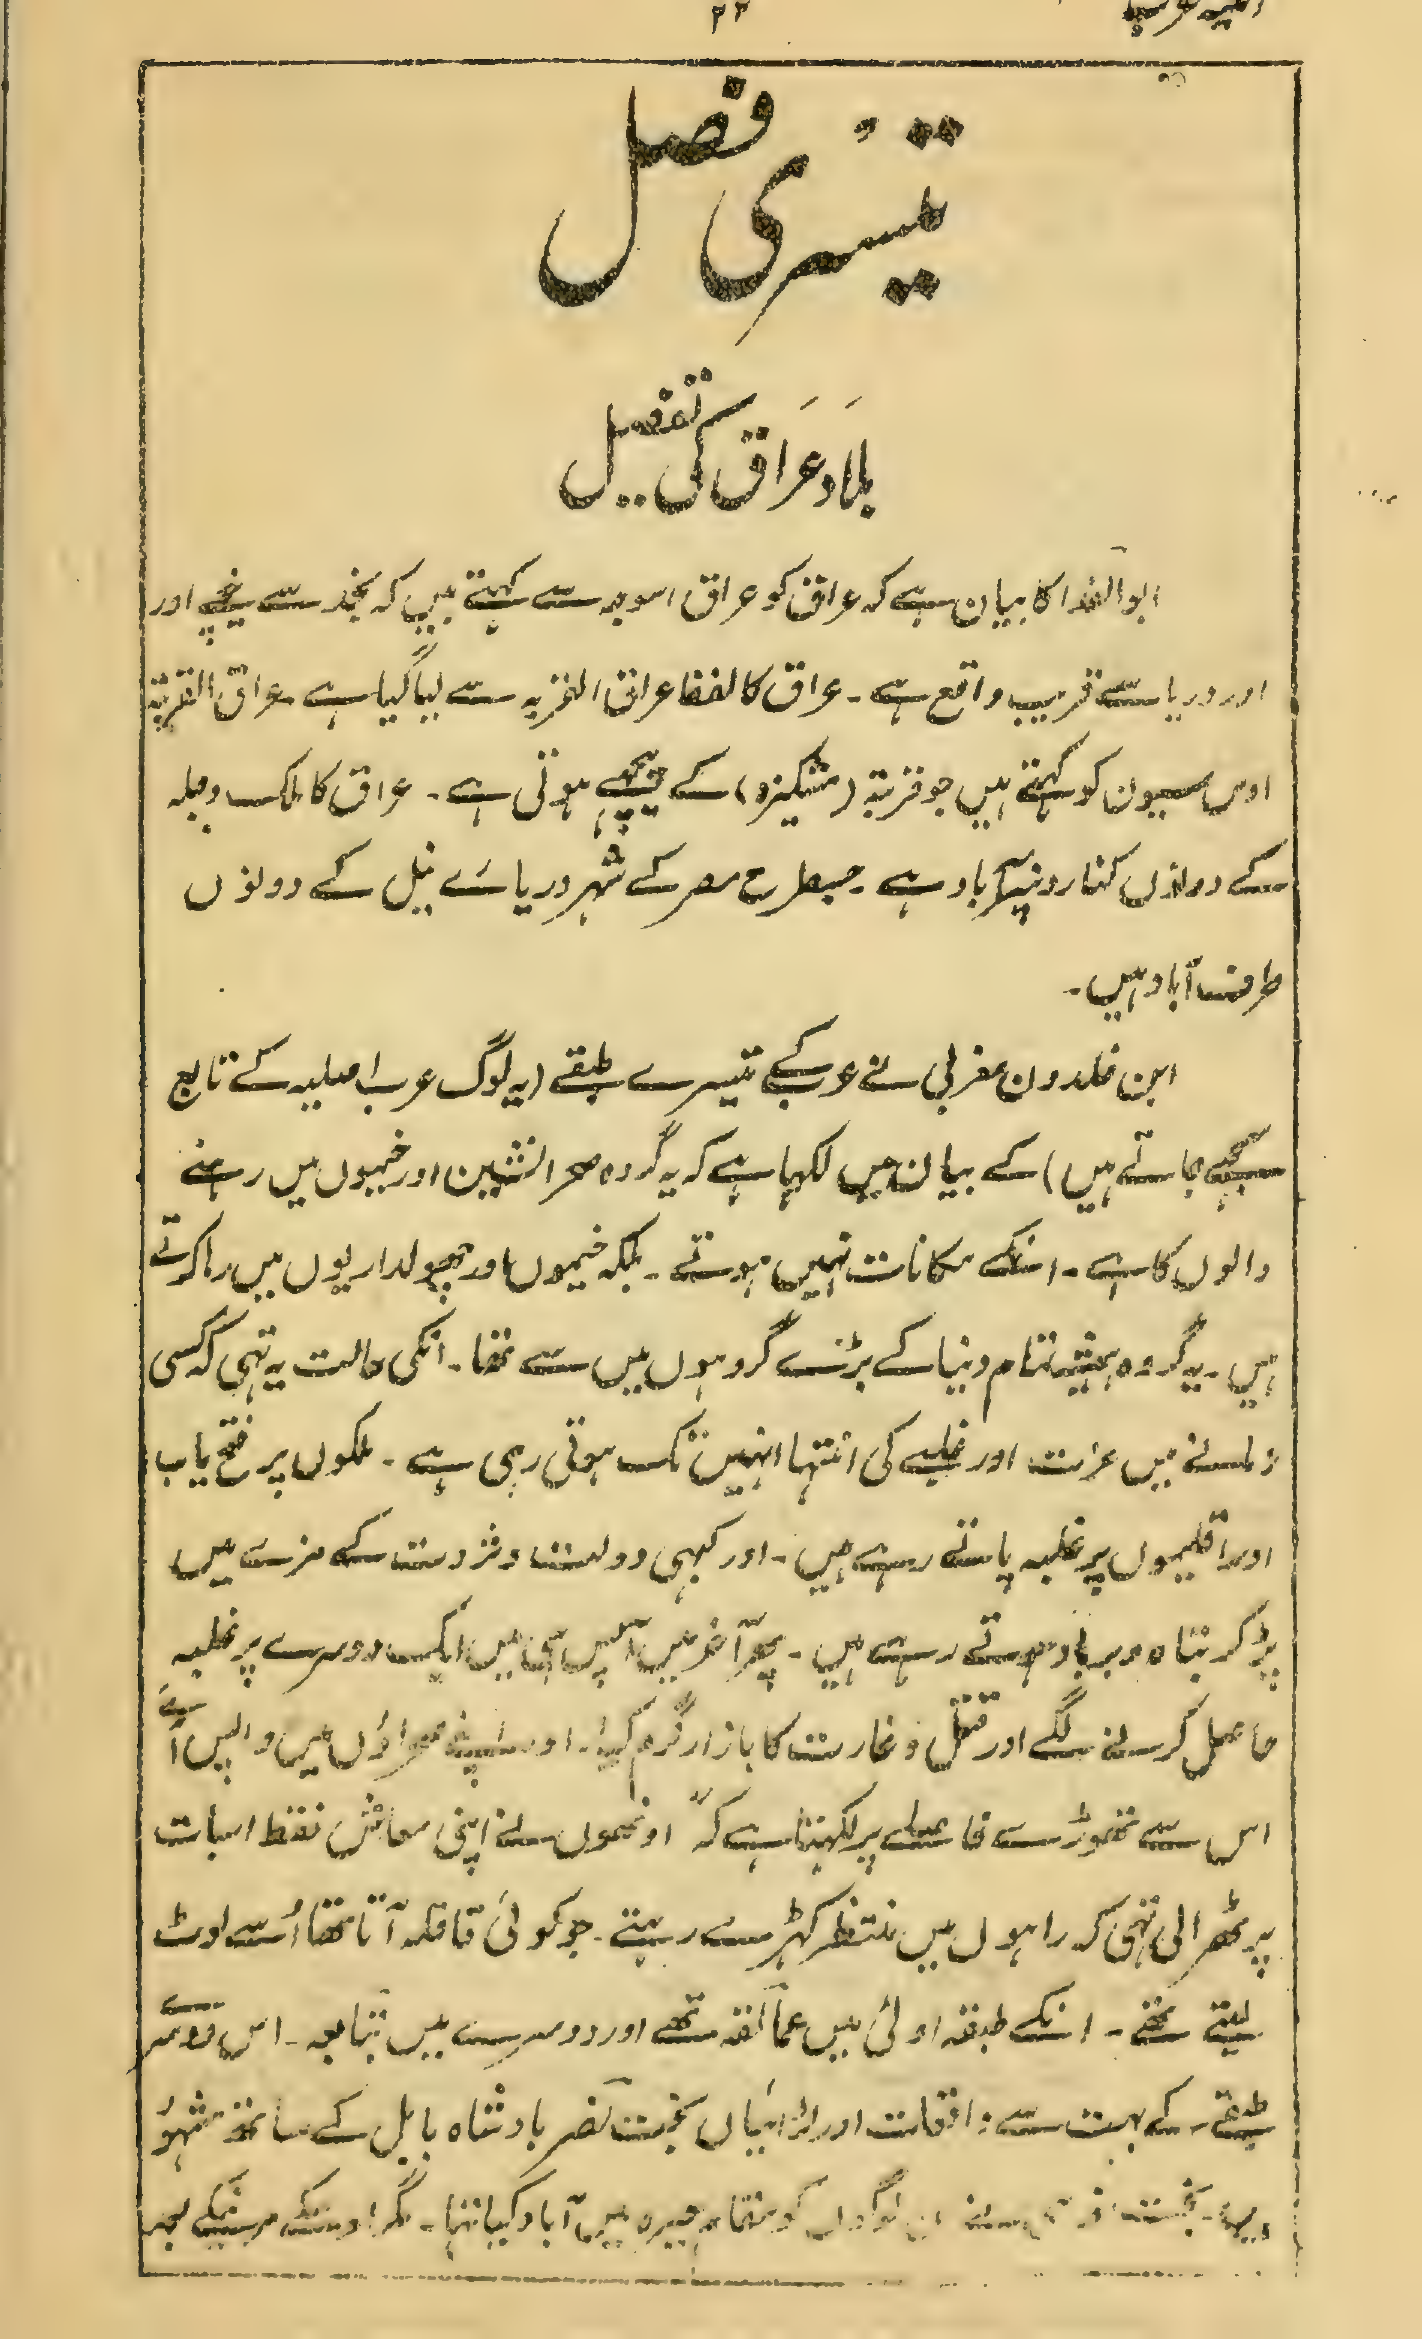 ۳۳
تیسری فصل
بلاد عراق کی تفصیل
ابوالفدا کا بیان ہے کہ عراق کو عراق اسوجہ سے کہتے ہیں کہ نجد سے نیچے اور
اور دریا سے قریب واقع ہے۔ عراق کا لفظ عراق القربہ سے لیا گیا ہے۔ عراق القربۃ
اوس سیون کو کہتے ہیں جو قربۃ (مشکیزہ) کے نیچے ہوتی ہے۔ عراق کا ملک دجلہ
کے دونوں کنارونپر آباد ہے۔ جسطرح مصر کے شہر دریائے نیل کے دونوں
طرف آباد ہیں۔
ابن خلدون مغربی نے عرب کے تیسرے طبقے (یہ لوگ عرب کے تابع
سمجھے جاتے ہیں) کے بیان میں لکہا ہے کہ یہ گروہ صحرا نشین اور خیموں میں رہنے
والوں کا ہے۔ انکے مکانات نہیں ہوتے۔ بلکہ خیموں اور چھولداریوں میں رہا کرتے
ہیں۔ یہ گروہ ہمیشہ تمام دنیا کے بڑے گروہوں میں سے تھا۔ انکی حالت یہ تہی کہ کسی
زمانے میں عزت اور غلبے کی انتہا انہیں تک ہوتی رہی ہے۔ ملکوں پر فتح یاب
اور اقلیموں پر غلبہ پاتے رہے ہیں۔ اور کبہی دولت و ثروت کے مزے میں
پڑ کر تباہ و برباد ہوتے رہے ہیں۔ پھر آخر میں آپس ہی میں ایک دوسرے پر غلبہ
حاصل کرنے لگے اور قتل و غارت کا بازار گرم کیا۔ اور اپنے صحراؤں میں واپس آئے
اس سے تھوڑے فاصلے پر لکہتا ہے کہ "اونہوں نے اپنی معاش فقط اسبات
پر ٹھرالی تہی کہ راہوں میں منتظر کہڑے رہتے۔ جو کوئی قافلہ آتا تھا اُسے لوٹ
لیتے تھے۔ انکے طبقہ اولیٰ میں عمالقہ تھے اور دوسرے میں تبابعہ۔ اس دوسرے
طبقے کے بہت سے واقعات اور لڑائیاں بخت نصر بادشاہ بابل کے ساتھ مشہور
ہیں۔ بخت نصر نے ان لوگوں کو مقام حیرہ میں آباد کیا تہا۔ مگر اوسکے مرنیکے بعد